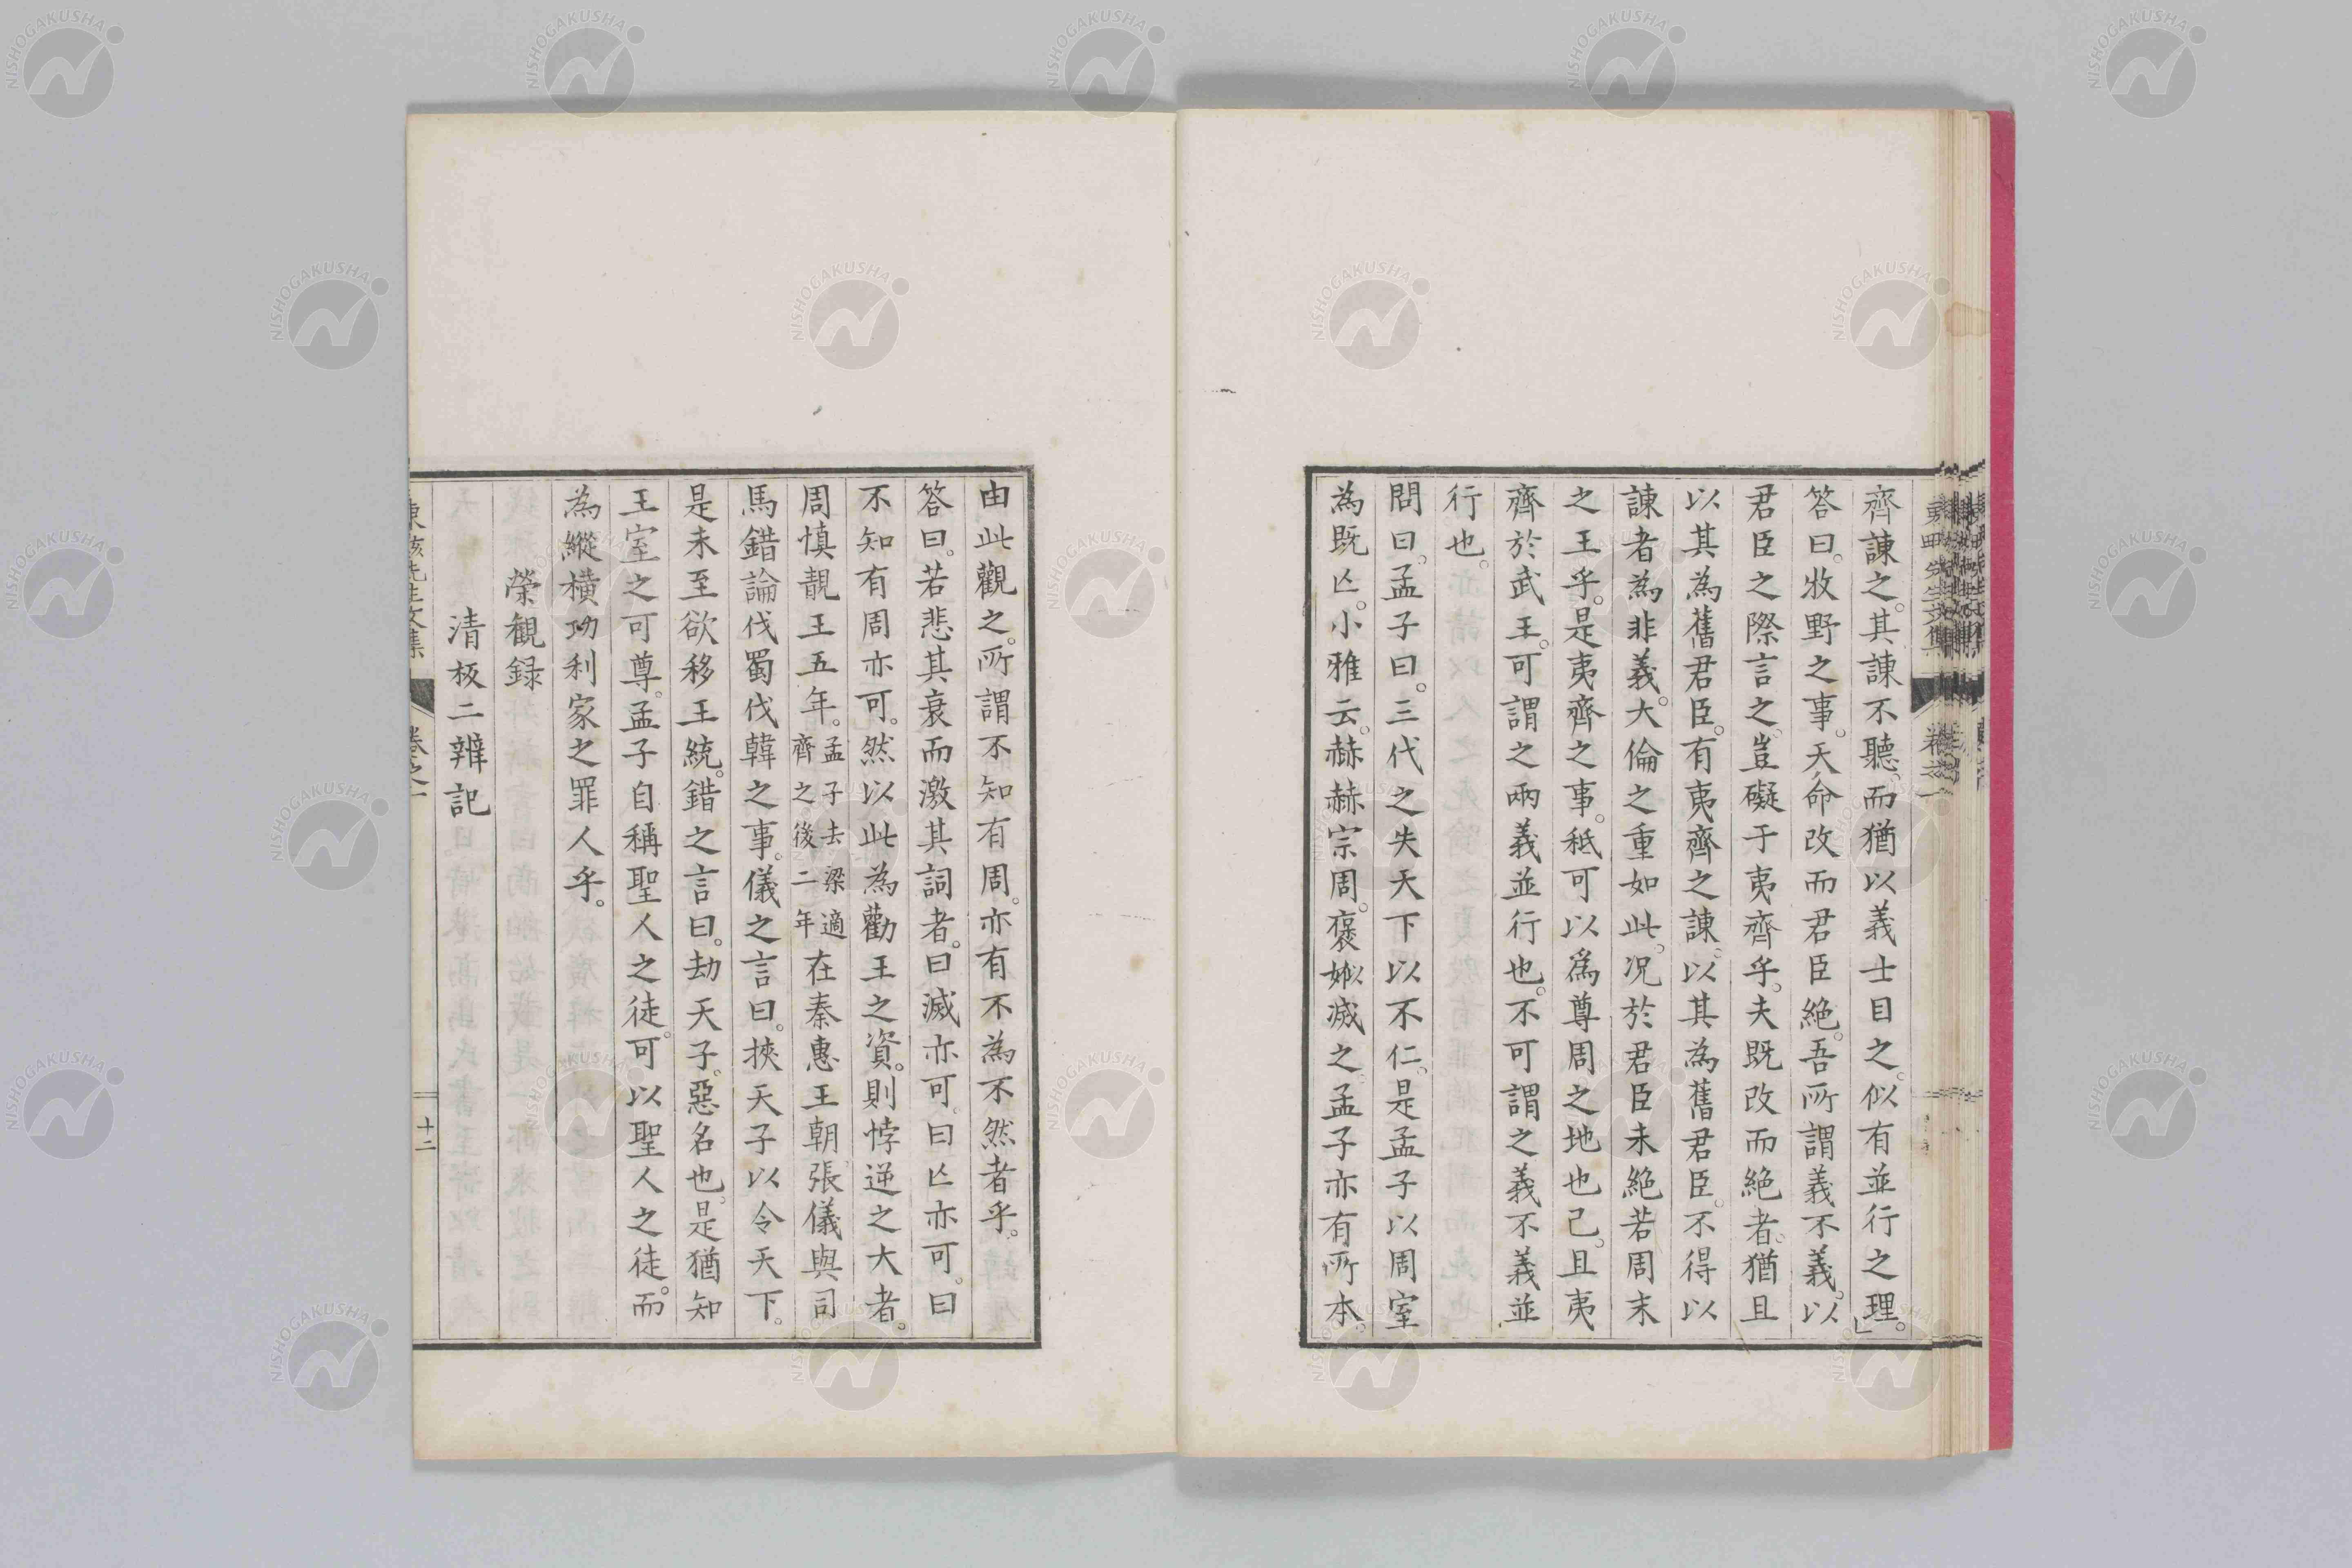 齊諫之。其諫不聽。而猶以義士目之。似有並行之理。」
答曰。牧野之事。天命改而君臣絶。吾所謂義不義。以
君臣之際言之。豈礙于夷齊乎。夫既改而絶者。猶且
以其為舊君臣。有夷齊之諫。以其為舊君臣。不得以
諫者為非義。大倫之重如此。况於君臣未絶若周末
之王乎。是夷齊之事。秪可以爲尊周之地也已。且夷
齊於武王。可謂之兩義並行也。不可謂之義不義並
行也。
問曰。孟子曰。三代之失天下以不仁。是孟子以周室
為既亾。小雅云。赫赫宗周。褒姒滅之。孟子亦有所本。
由此觀之。所謂不知有周。亦有不為不然者乎。
答曰。若悲其衰而激其詞者。曰滅亦可。曰亾亦可。曰
不知有周亦可。然以此為勸王之資。則悖逆之大者。
周慎靚王五年。孟子去梁適齊之後二年在秦惠王朝張儀與司
馬錯論伐蜀伐韓之事。儀之言曰。挾天子以令天下。
是未至欲移王統。錯之言曰。劫天子。惡名也。是猶知
王室之可尊。孟子自稱聖人之徒。可以聖人之徒。而
為縱横功利家之罪人乎。
榮観録
清板二辨記
卷之一
十二
NISHOGAKUSHA